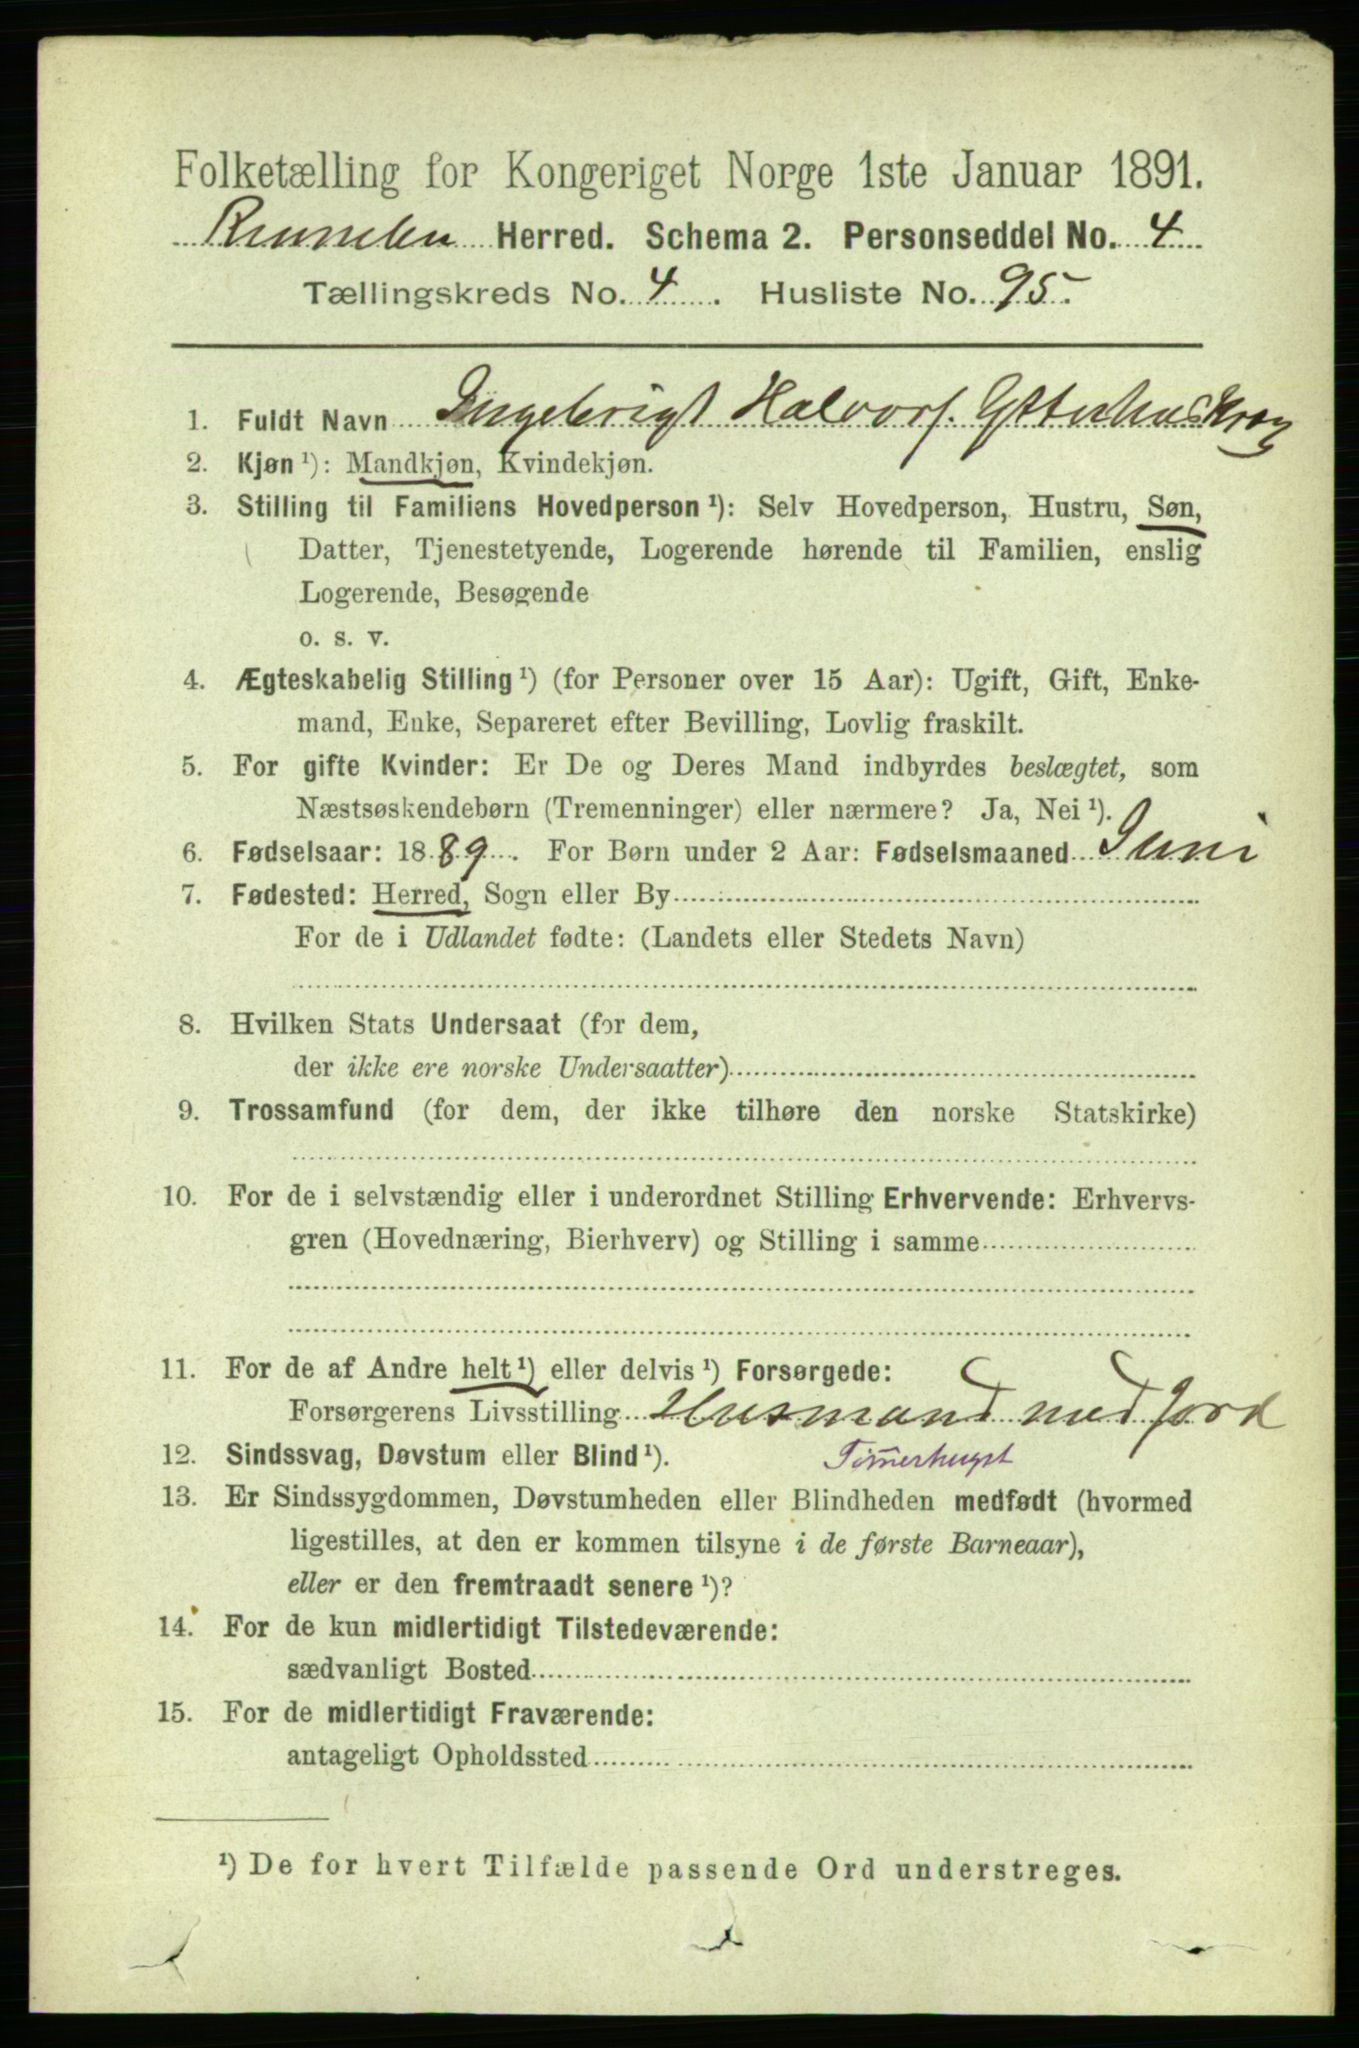 Folketælling for Kongeriget Norge 1ste Januar 1891.
Herred. Schema 2. Personseddel No. 4
Tællingskreds No. 4. Husliste No. 95.
1. Fuldt Navn Ingebrigt Halvors. Ytterhus
2. Kjøn ¹): Mandkjøn, Kvindekjøn.
3. Stilling til Familiens Hovedperson ¹): Selv Hovedperson, Hustru, Søn,
Datter, Tjenestetyende, Logerende hørende til Familien, enslig
Logerende, Besøgende
o. s. v.
4. Ægteskabelig Stilling ¹) (for Personer over 15 Aar): Ugift, Gift, Enke-
mand, Enke, Separeret efter Bevilling, Lovlig fraskilt.
5. For gifte Kvinder: Er De og Deres Mand indbyrdes beslægtet, som
Næstsøskendebørn (Tremenninger) eller nærmere? Ja, Nei ¹).
6. Fødselsaar: 1889. For Børn under 2 Aar: Fødselsmaaned Juni
7. Fødested: Herred, Sogn eller By
For de i Udlandet fødte: (Landets eller Stedets Navn)
8. Hvilken Stats Undersaat (for dem,
der ikke ere norske Undersaatter)
9. Trossamfund (for dem, der ikke tilhøre den norske Statskirke)
10. For de i selvstændig eller i underordnet Stilling Erhvervende: Erhvervs-
gren (Hovednæring, Bierhverv) og Stilling i samme
11. For de af Andre helt ¹) eller delvis ¹) Forsørgede:
Forsørgerens Livsstilling Husmand med Jord
12. Sindssvag, Døvstum eller Blind ¹). Tim̄erhugst
13. Er Sindssygdommen, Døvstumheden eller Blindheden medfødt (hvormed
ligestilles, at den er kommen tilsyne i de første Barneaar),
eller er den fremtraadt senere ¹)?
14. For de kun midlertidigt Tilstedeværende:
sædvanligt Bosted
15. For de midlertidigt Fraværende:
antageligt Opholdssted
¹) De for hvert Tilfælde passende Ord understreges.